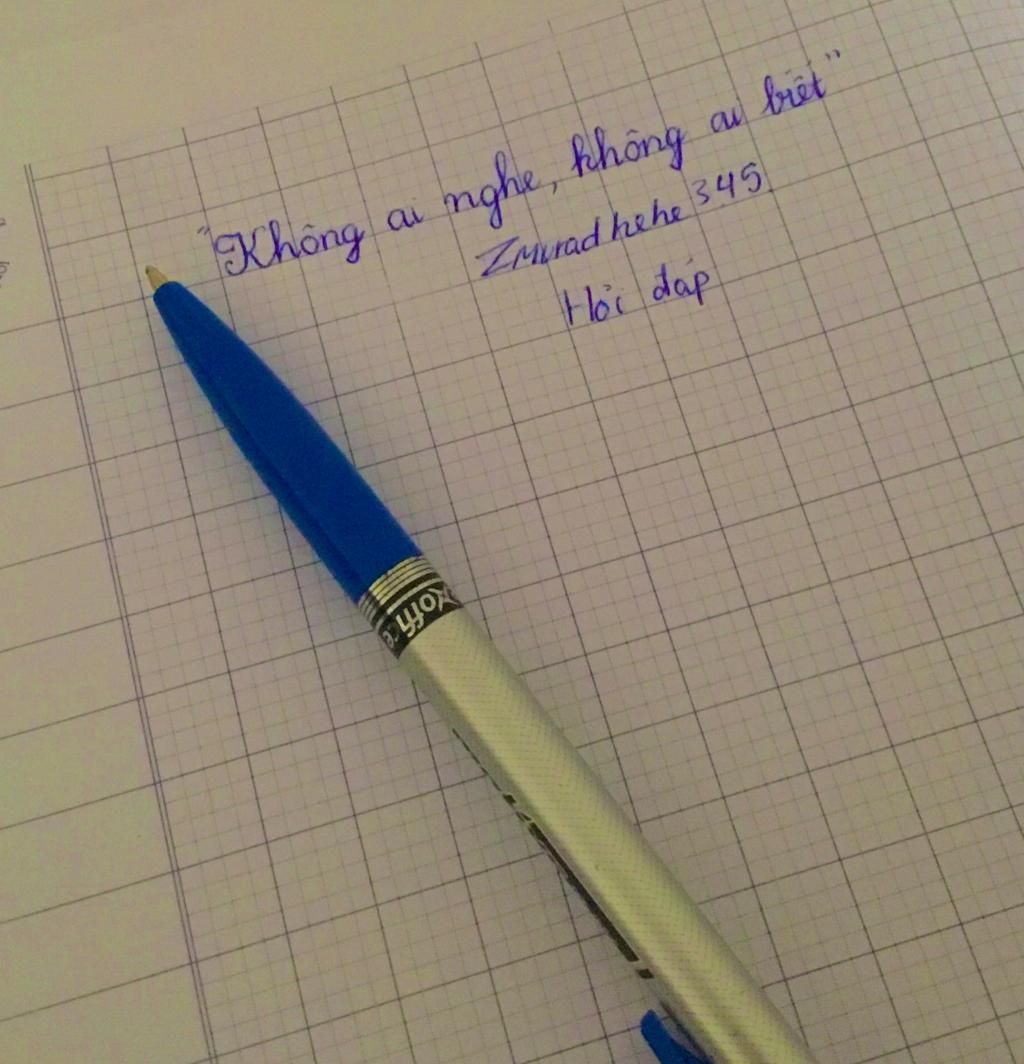 "Không ai nghe, không ai biết"
Zmuradhehe345
Hỏi đáp
Xoffice